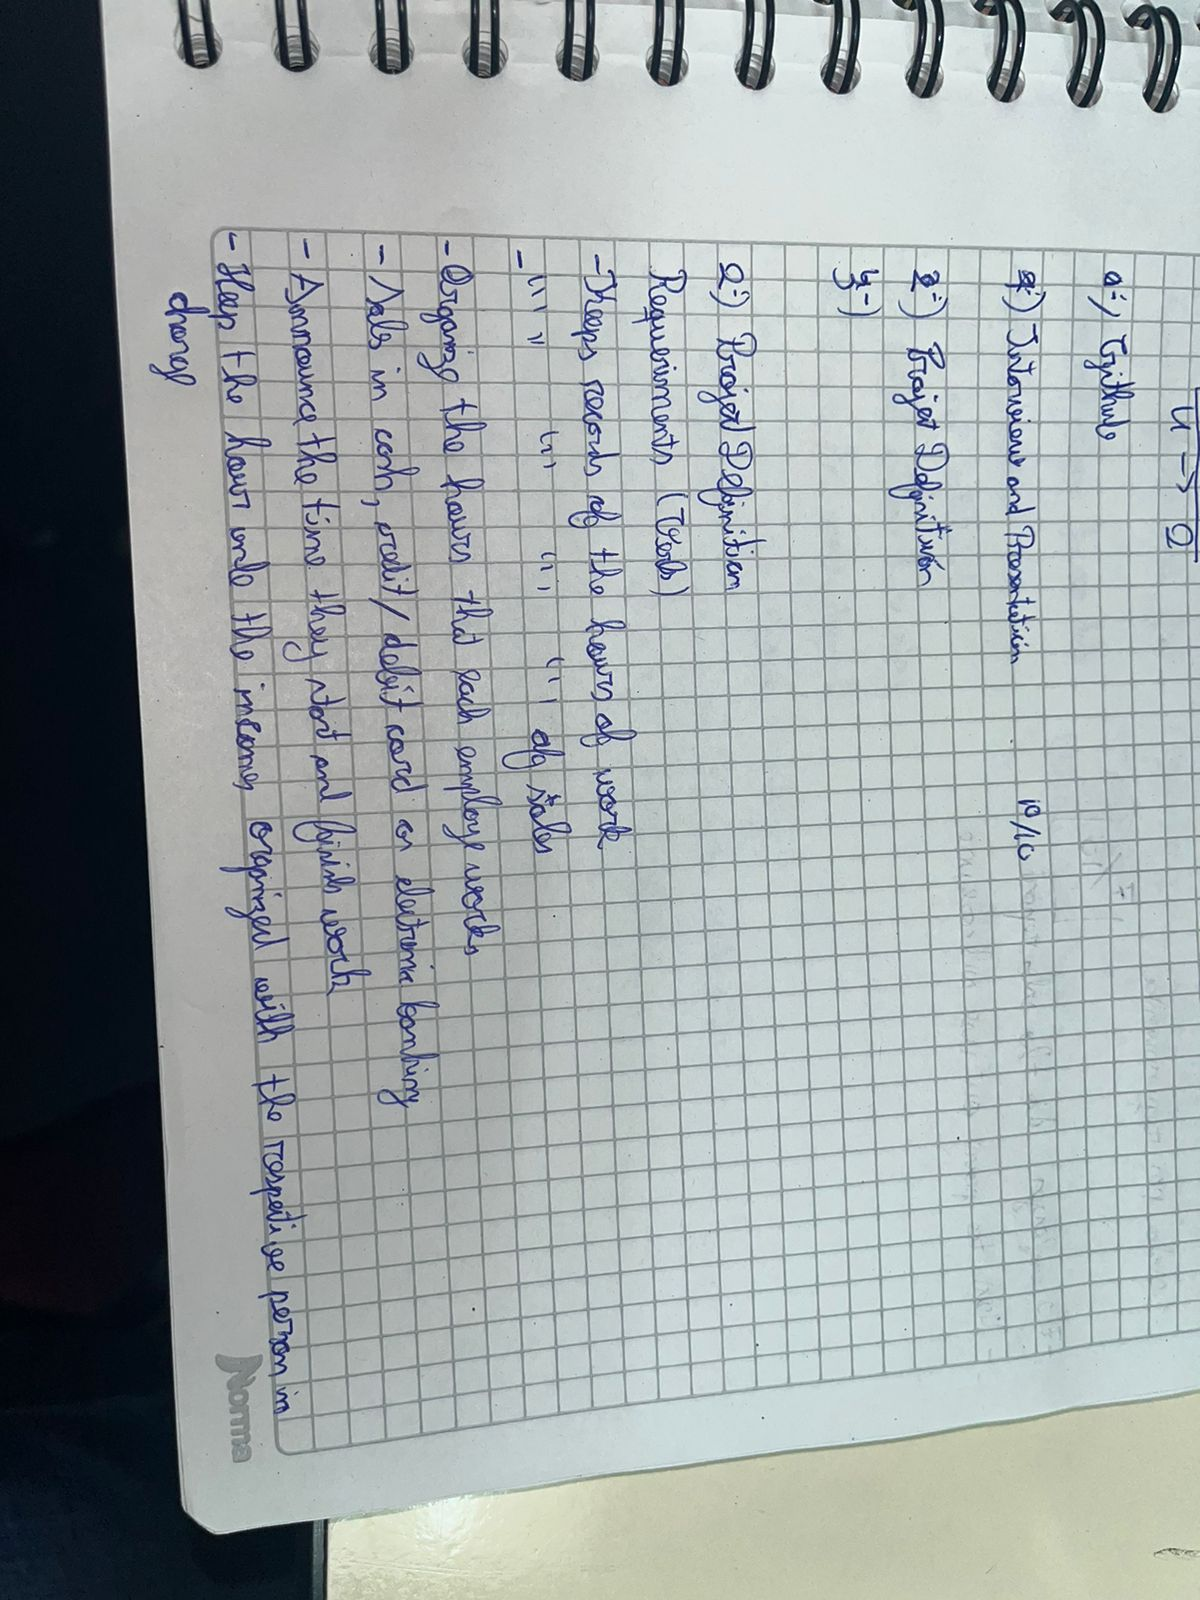 U → 2
0-) Github
1-) Interviews and Presentation 10/10
2-) Projet Definition
3-)
2-) Projet Definition
Requeriments (Verbs)
- Keeps records of the hours of work
- " " " " of sales
- Organize the hours that each employe works
- Sales in cash, credit/debit card or electronic banking
- Announce the time they start and finish work
- Keep the hours and the incomes organized with the respective person in
charge
Norma